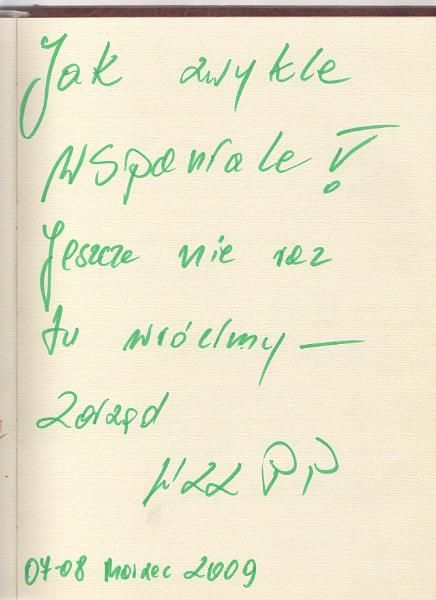 Jak zwykle
wspaniale!
Jeszcze nie raz
tu wrócimy —
Zarząd
PP
07-08 Marzec 2009